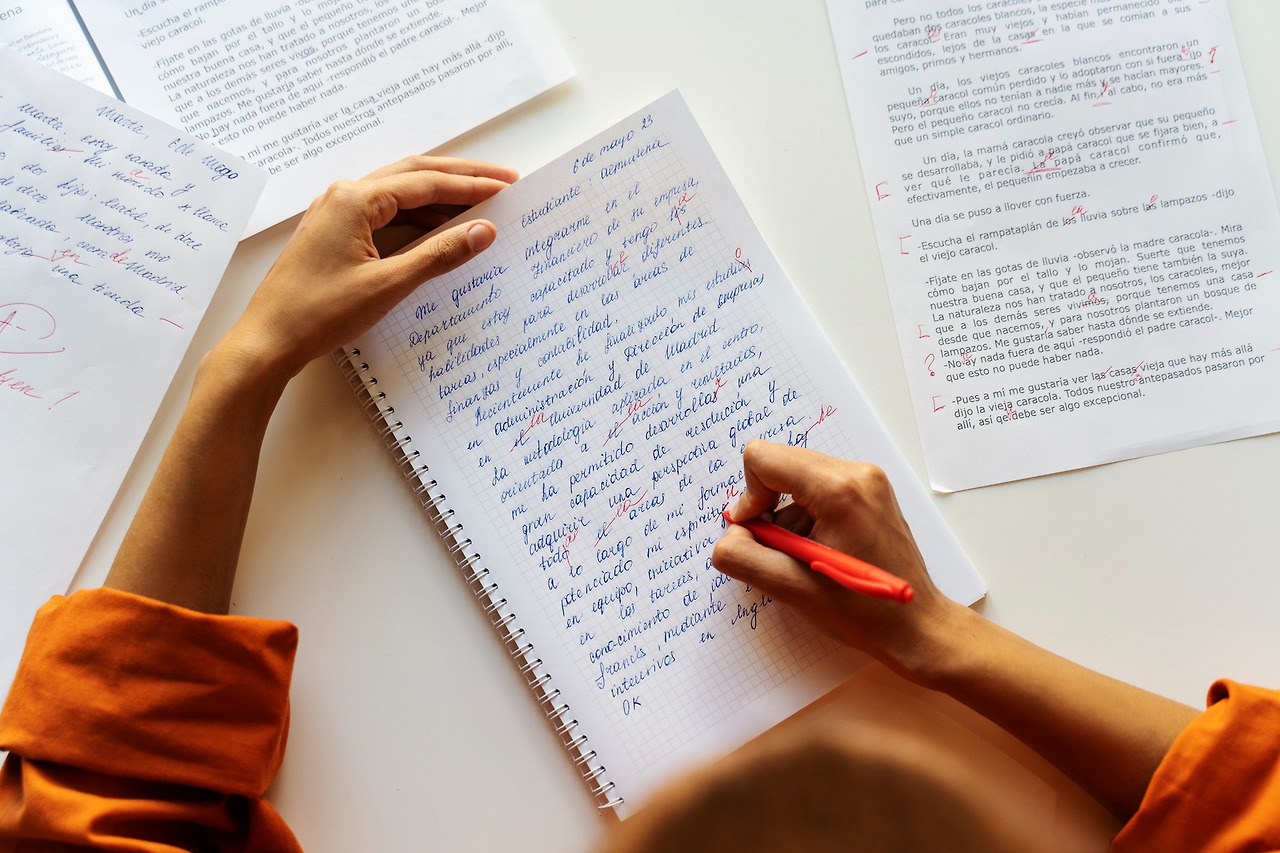 Un día se
-Escucha el
viejo caracol.
-Fíjate en las gotas de lluvia
cómo bajan por el tallo y
nuestra buena casa, y que el pequeño
La naturaleza nos han tratado a nosotros, los
que a los demás seres vivos, porque tenemos
desde que nacemos, y para nosotros plantaron un bosque
lampazos. Me gustaría saber hasta dónde se extiende.
-No hay nada fuera de aquí -respondió el padre caracol-. Mejor
que esto no puede haber nada.
a mí me gustaría ver la casa vieja que hay más allá -dijo
caracola-. Todos nuestros antepasados pasaron por allí,
be ser algo excepcional.
Marta, 6 de mayo
Marta, estoy casada y
familia. Mi marido se llama
dos hijos:
nuestro
Madrid
en
una tienda
A-
6 de mayo 23
Estudiante: Almudena
Me gustaría integrarme en el
Departamento Financiero de su empresa,
ya que estoy capacitado y tengo las
habilidades para desarrollar diferentes
tareas, especialmente en las áreas de
finanzas y contabilidad.
Recientemente he finalizado mis estudios
en administración y Dirección de Empresas
en el la Universidad de Madrid.
La metodología aplicada en el centro,
orientada a el la acción y resultados,
me ha permitido desarrollar una
gran capacidad de resolución y
adquirir una perspectiva global de
todas el las áreas de la empresa.
a lo largo de mi formac haf he
potenciado mi espíritu
en equipo, iniciativa y
en las tareas, a
conocimiento de id
francés, mediante e
intensivos en Ingl
OK
Pero no todos los caracoles
quedaban dos caracoles blancos, la especie más
los caracol. Eran muy viejos y habían permanecido
escondidos, lejos de la casa en la que se comían a sus
amigos, primos y hermanos.
Un día, los viejos caracoles blancos encontraron un
pequeña caracol común perdido y lo adoptaron con si fuera ijo
suyo, porque ellos no tenían a nadie más y se hacían mayores.
Pero el pequeño caracol no crecía. Al fin al cabo, no era más
que un simple caracol ordinario.
Un día, la mamá caracola creyó observar que su pequeño
se desarrollaba, y le pidió a papá caracol que se fijara bien, a
ver qué le parecía. La papá caracol confirmó que,
efectivamente, el pequeñín empezaba a crecer.
Una día se puso a llover con fuerza.
-Escucha el rampataplán de los lluvia sobre las lampazos -dijo
el viejo caracol.
-Fíjate en las gotas de lluvia -observó la madre caracola-. Mira
cómo bajan por el tallo y lo mojan. Suerte que tenemos
nuestra buena casa, y que el pequeño tiene también la suya.
La naturaleza nos han tratado a nosotros, los caracoles, mejor
que a los demás seres vivimos, porque tenemos una casa
desde que nacemos, y para nosotros plantaron un bosque de
lampazos. Me gustaría saber hasta dónde se extiende.
? -No ay nada fuera de aquí -respondió el padre caracol-. Mejor
que esto no puede haber nada.
-Pues a mí me gustaría ver las casas vieja que hay más allá
dijo la vieja caracola. Todos nuestro antepasados pasaron por
allí, así qe debe ser algo excepcional.